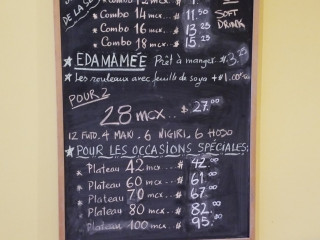 DE LA SE
Combo 12 mcx...
Combo 14 mcx... " 11.50
Combo 16 mcx... " 13.25
Combo 18 mcx... # 15.25
SOFT
DRINK
★ EDAMAMÉE Prêt à manger. $3.25
★ Les rouleaux avec feuille de soya + $1.00
POUR 2
28 mcx.. $ 27.00
12 FUTO. 4 MAKI. 6 NIGIRI. 6 HOSO
★ POUR LES OCCASIONS SPÉCIALES:
* Plateau 42 mcx... # 42.00
* Plateau 60 mcx... # 61.00
* Plateau 70 mcx... # 67.00
* Plateau 80 mcx... # 82.00
* Plateau 100 mcx.. # 95.00